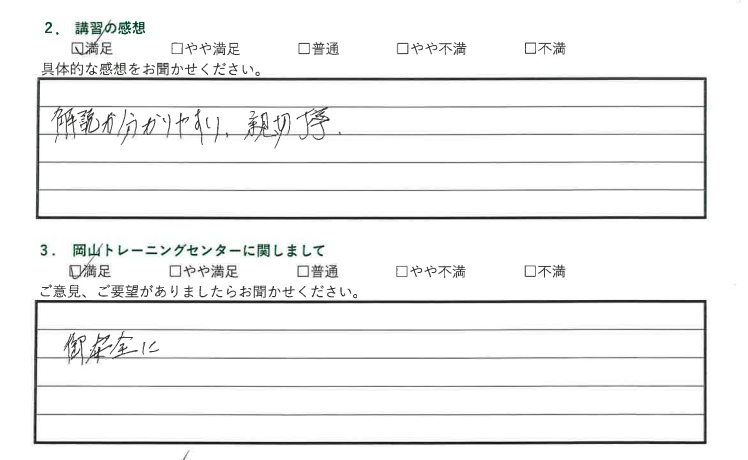 2. 講習の感想
☑満足 □やや満足 □普通 □やや不満 □不満
具体的な感想をお聞かせください。
解説が分かりやすい、親切丁寧、
3. 岡山トレーニングセンターに関しまして
☑満足 □やや満足 □普通 □やや不満 □不満
ご意見、ご要望がありましたらお聞かせください。
御安全に